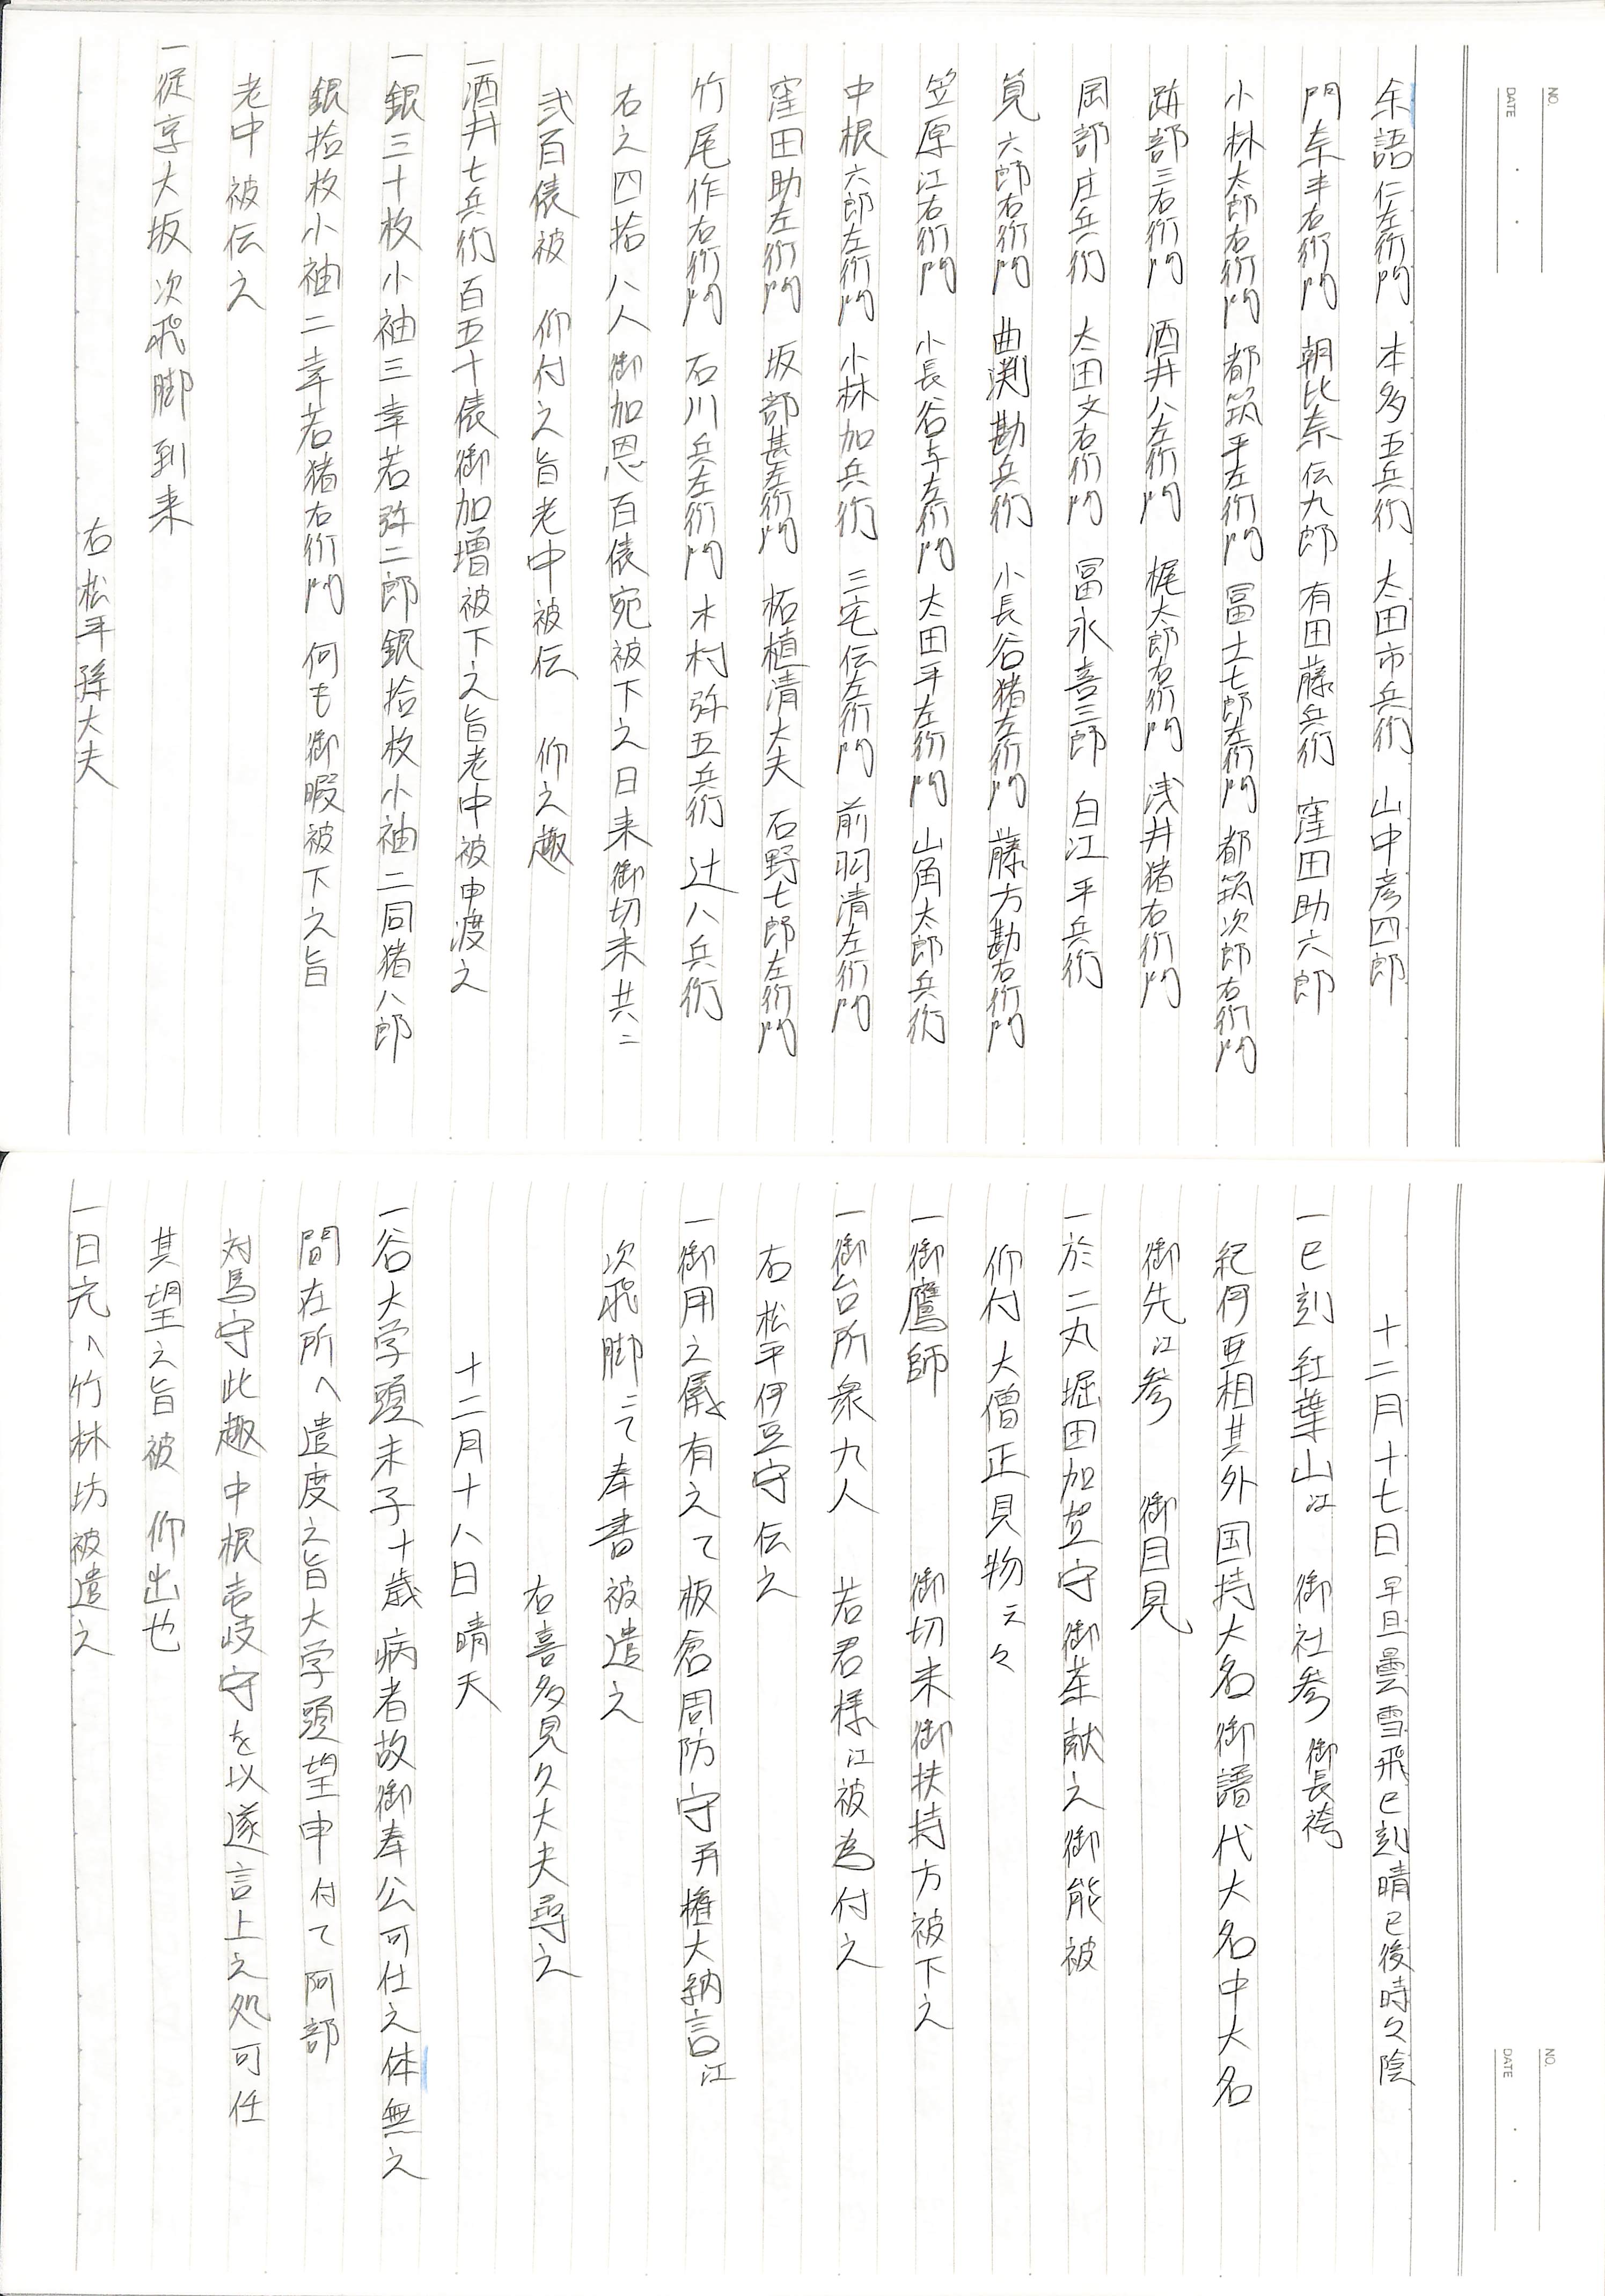 余語仁左衛門　本多五兵衛　太田市兵衛　山中彦四郎
門奈半右衛門　朝比奈伝九郎　有田藤兵衛　窪田助六郎
小林太郎右衛門　都筑平左衛門　冨士七郎左衛門　都筑次郎右衛門
跡部三右衛門　酒井八左衛門　梶太郎右衛門　浅井猪右衛門
岡部庄兵衛　太田文右衛門　冨永喜三郎　白江平兵衛
筧六郎右衛門　曲渕勘兵衛　小長谷猪左衛門　藤方勘右衛門
笠原江右衛門　小長谷与左衛門　太田平左衛門　山角太郎兵衛
中根六郎左衛門　小林加兵衛　三宅伝左衛門　前羽清左衛門
窪田助左衛門　坂部甚左衛門　柘植清大夫　石野七郎左衛門
竹尾作右衛門　石川兵左衛門　木村弥五兵衛　辻八兵衛
右之四拾八人御加恩百俵宛被下之日来御切米共ニ
弐百俵被　仰付之旨老中被伝　仰之趣
一酒井七兵衛百五十俵御加増被下之旨老中被申渡之
一銀三十枚小袖三幸若弥二郎銀拾枚小袖二同猪八郎
銀拾枚小袖二幸若猪右衛門　何も御暇被下之旨
老中被伝之
一従京大坂次飛脚到来
右松平孫大夫
NO.
DATE
十二月十七日早旦曇雪飛巳刻晴巳後時々陰
一巳刻　紅葉山江　御社参　御長袴
紀伊亜相其外国持大名御譜代大名中大名
御先江参　御目見
一於二丸堀田加賀守御茶献之御能被
仰付　大僧正見物云々
一御鷹師　御切米御扶持方被下之
一御台所衆九人　若君様江被為付之
右松平伊豆守伝之
一御用之儀有之て板倉周防守并権大納言江
次飛脚ニて奉書被遣之
右喜多見久大夫尋之
十二月十八日晴天
一谷大学頭末子十歳病者故御奉公可仕之体無之
間在所へ遣度之旨大学頭望申付て阿部
対馬守此趣中根壱岐守を以遂言上之処可任
其望之旨被　仰出也
一日光へ竹林坊被遣之
NO.
DATE